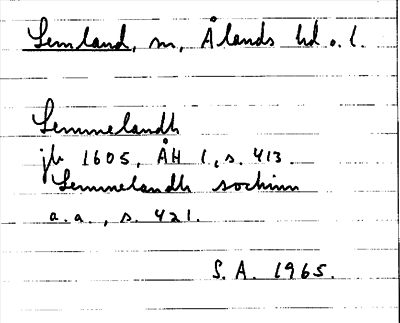 Lemland, sn, Ålands hd o. l.
Lemmelandh
jb 1605, ÅH 1, s. 413.
Lemmelandh sochnn
a.a., s. 421.
S. A. 1965.